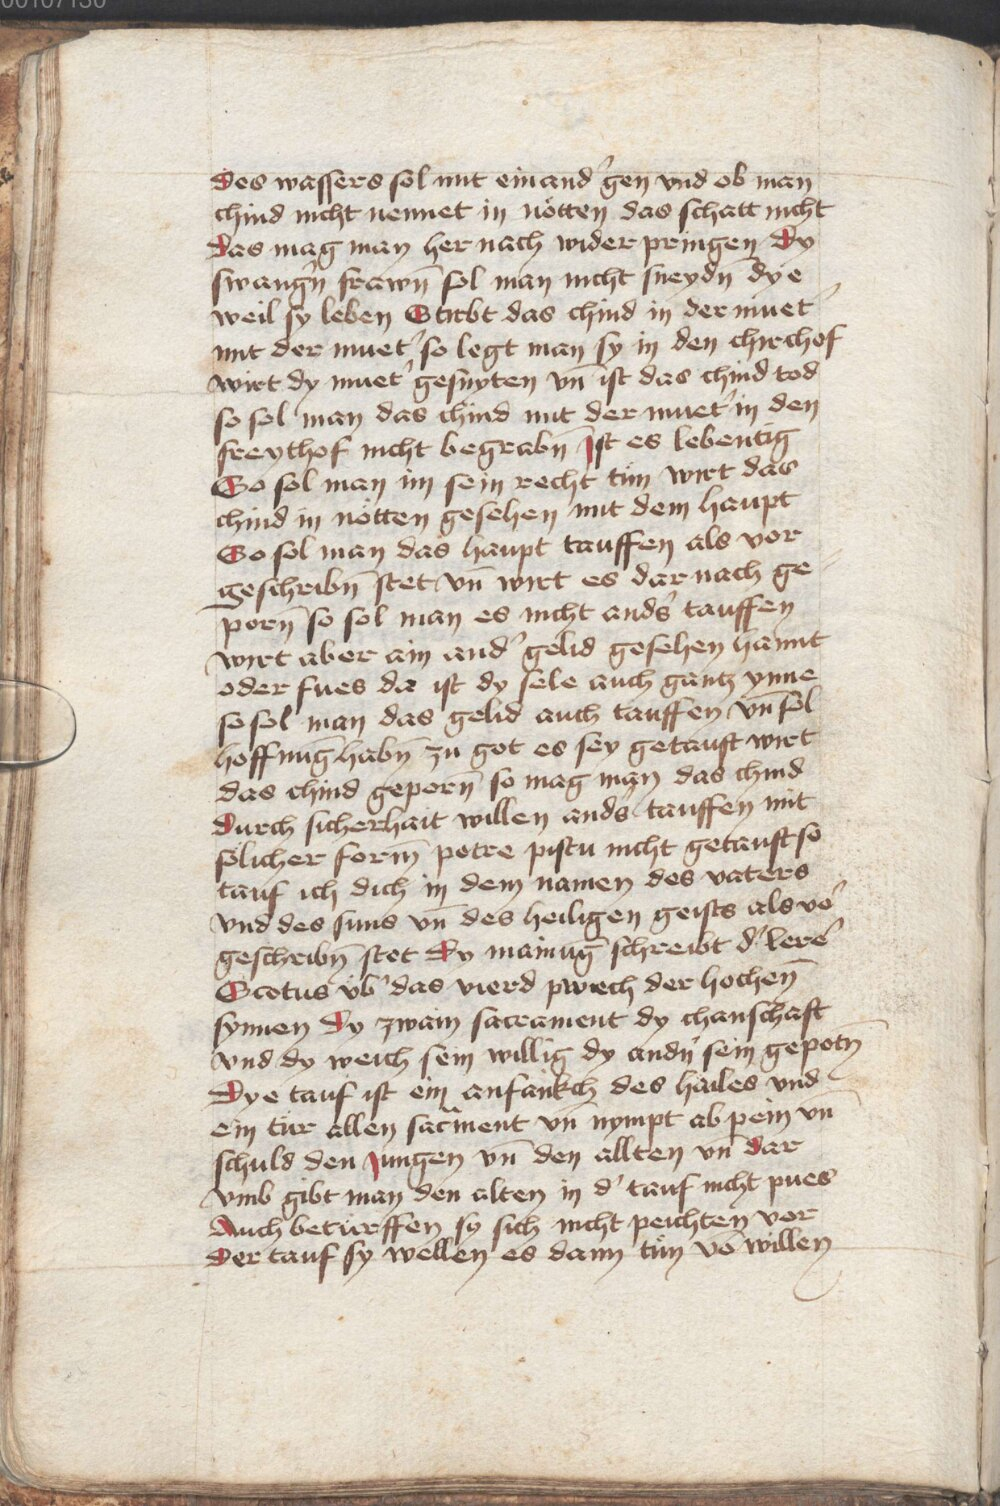 des wassers sol mit einand' gen vnd ob man
chind nicht nennet in nötten das schatt nicht
das mag man her nach wider pringen Dy
swang'n frawn̄ sol man nicht sneydn̄ dye
weil sy leben Stirbt das chind in der muet'
mit der muet' so legt man sy in den chirchof
wirt dy muet' gesnyten vn̄ ist das chind tod
so sol man das chind mit der muet' in den
freythof nicht begrabn̄ Ist es lebentig
So sol man im sein recht tün wirt das
chind in nötten gesehen mit dem haupt
So sol man das haupt tauffen als vor
geschribn̄ stet vn̄ wirt es dar nach ge
porn̄ so sol man es nicht anders' tauffen
wirt aber ain and' gelid gesehen hannt
oder fues da ist dy sele auch gantz ynne
so sol man das gelid auch tauffen vn̄ sol
hoffnūg habn̄ zu got es sey getauft wirt
das chind geporn̄ so mag man das chind
durch sicherhait willen anders tauffen mit
sölicher form̄ potre pistu nicht getauft so
tauf ich dich in dem namen des vaters
vnd des suns vn̄ des heiligen geists als vo'
geschribn̄ stet Dy mainūg schreibt d' lere'
Scotus vb' das vierd puech der hochen̄
synnen Dy zwain sacrament dy chanschaft
vnd dy weich sein willig dy andn' sein gepotn̄
Dye tauf ist ein anfankch des hailes vnd
ein tür allen sac̄ment vn̄ nympt ab pein vn̄
schuld den jungen vn̄ den allten vn̄ dar
vmb gibt man den alten in d' tauf nicht pues
Auch betürffen sy sich nicht peichten vor
der tauf sy wellen es dann tün vō willen